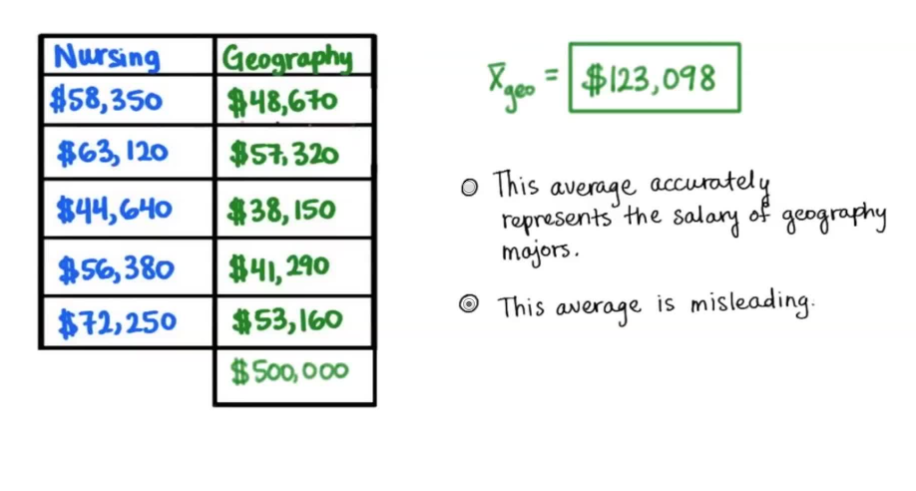 Nursing Geography
$58,350 $48,670
$63,120 $57,320
$44,640 $38,150
$56,380 $41,290
$72,250 $53,160
$500,000
x̄geo = $123,098
This average accurately
represents the salary of geography
majors.
This average is misleading.